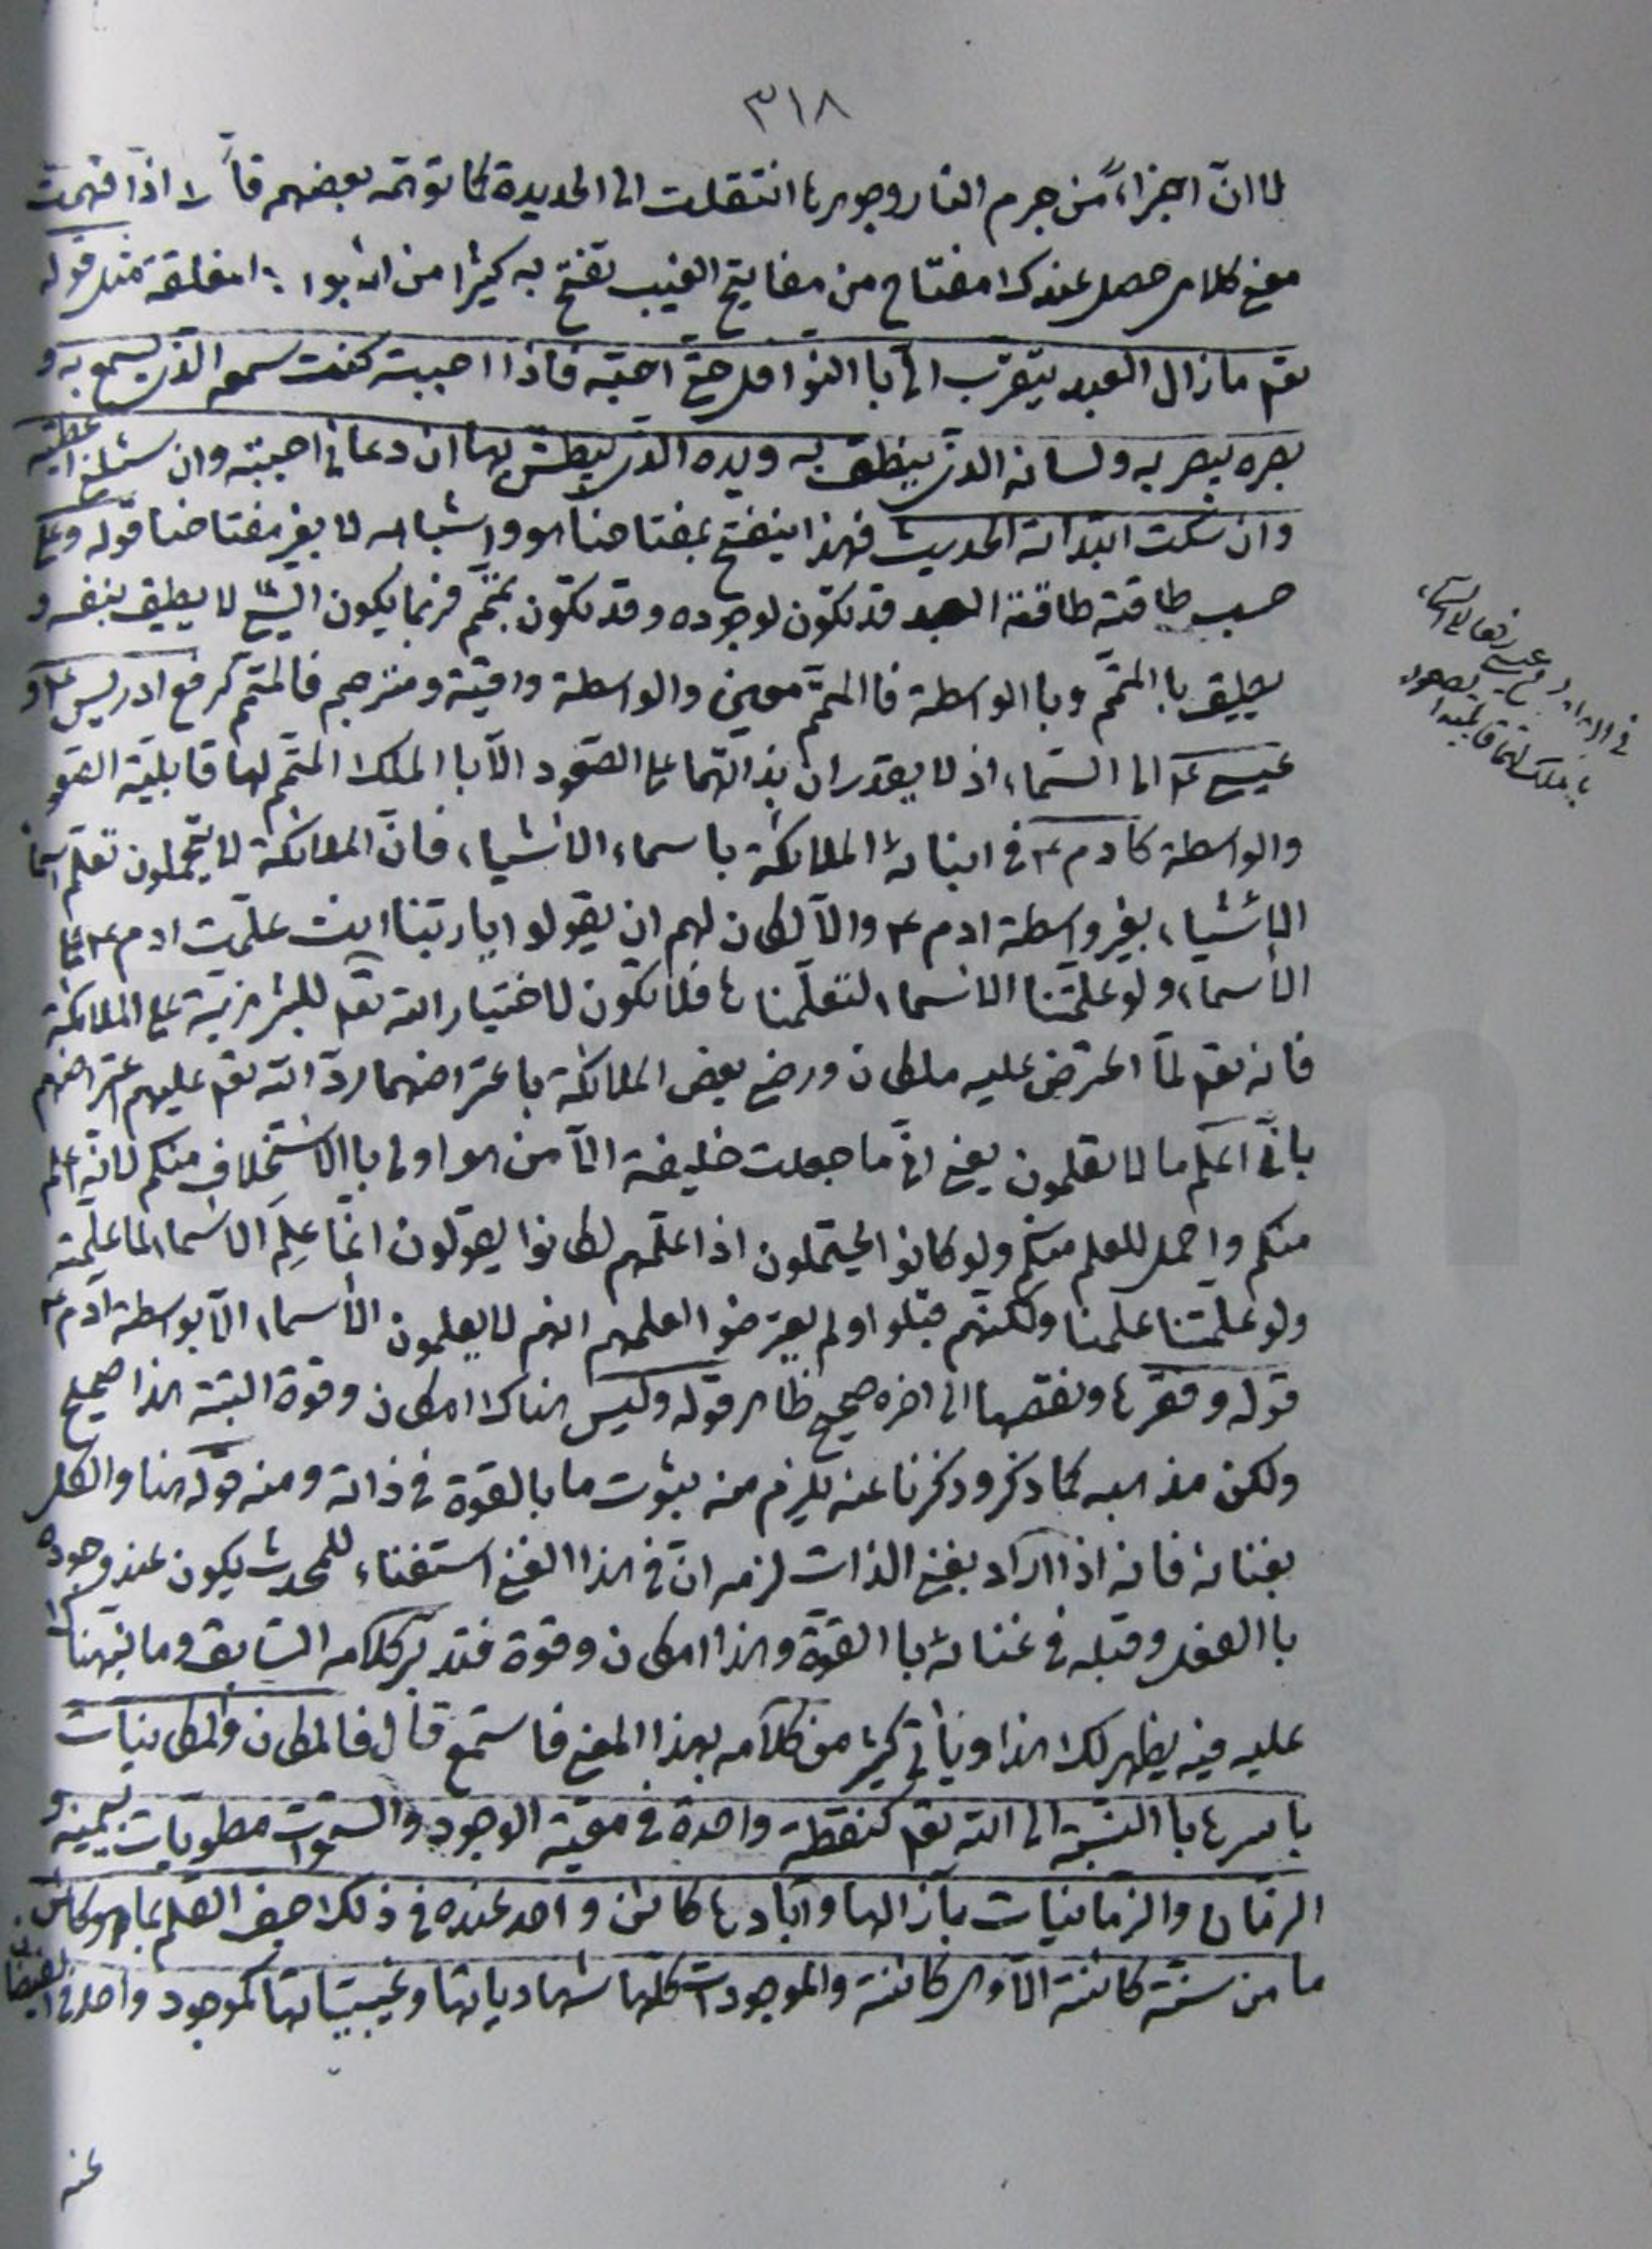 ٣١٨
لا انّ اجزاء من جرم النار وجوهرها انتقلت الى الحديدة كما توهّمه بعضهم فاذا فهمت
معنى كلامى حصل عندك مفتاح من مفاتيح الغيب تفتح به كثيرا من الابواب المغلقة مثل قوله
تعم ما زال العبد يتقرّب الىّ باالنوافل حتى احبّه فاذا احببته كنت سمعه الذى يسمع به و
بصره يبصر به ولسانه الذى ينطق به ويده الذى يبطش بها ان دعانى اجبته وان سئلنى اعطيته
وان سكت ابتداته الحديث فهذا ينفتح بمفتاحنا هو واشباهه لا بغير مفتاحنا قوله وعلى
حسب طاقته طاقة العبد قد تكون لوجوده وقد تكون بمتمّم فربما يكون الشئ لا يطيق بنفسه و
يطيق باالمتمّم وباالواسطة فاالمتمّم معين والواسطة واقية ومترجم فالمتمّم كرفع ادريس ع و
عيسى ع الى السّماء اذ لا يقدران بذاتهما على الصّعود الّا باالملك المتمّم لهما قابلية الصّعو
والواسطة كادم ع فى انبائه الملائكة باسماء الاشياء فانّ الملائكة لا يتحملون تعلّم اسما
الاشياء بغير واسطة ادم ع والّا لكان لهم ان يقولوا ياربّنا انت علّمت ادم ع على
الأسماء ولو علّمتنا الاسماء لتعلّمناها فلا تكون لاختيار الله تعم للبشر مزيّة على الملائكة
فانه تعم لمّا اعترض عليه ملكان ورضى بعض الملائكة باعتراضهما ردّ الله تعم عليهم اعتراضهم
بانّى اعلم ما لا تعلمون يعنى انّى ما جعلت خليفة الّا من هو اولى باالاستخلاف منكم لانّه اعلم
منكم واحمل للعلم منكم ولو كانوا يحتملون اذا علّمهم لكانوا يقولون انّما علِمَ الاسماء لما علّمته
ولو علّمتنا علمنا ولكنّهم قبلوا ولم يعترضوا لعلمهم انهم لا يعلمون الأسماء الّا بوسطة آدم ع
قوله وفقرها ونقصها الى اخره صحيح ظاهر قوله وليس هناك امكان وقوة البتة هذا صحيح
ولكن مذهبه كما ذكر وذكرنا عنه يلزم منه ثبوت ما بالقوة فى ذاته ومنه قوله هنا والكل
بغنائه فانه اذا اراد بغنى الذات لزمه انّ فى هذا الغنى استغناء للمحدث يكون عند وجوده
باالفعل وقبله فى غنائه باالقوّة وهذا امكان وقوة فتدبّر كلامه السّابق وما نبّهنا
عليه فيه يظهر لك هذا ويأتى كثير من كلامه بهذا المعنى فاستمع قال فالمكان والمكانيات
باسرها باالنّسبة الى الله تعم كنقطة واحدة فى معيّة الوجود والسّموات مطويات بيمينه و
الزمان والزمانيات بآزالها وآبادها كان واحد عنده فى ذلك جف القلم بما هو كائن
ما من سنمة كائنة الّا وهى كائنة والموجودات كلّها شهادياتها وغيبياتها كموجود واحد فى
عنه